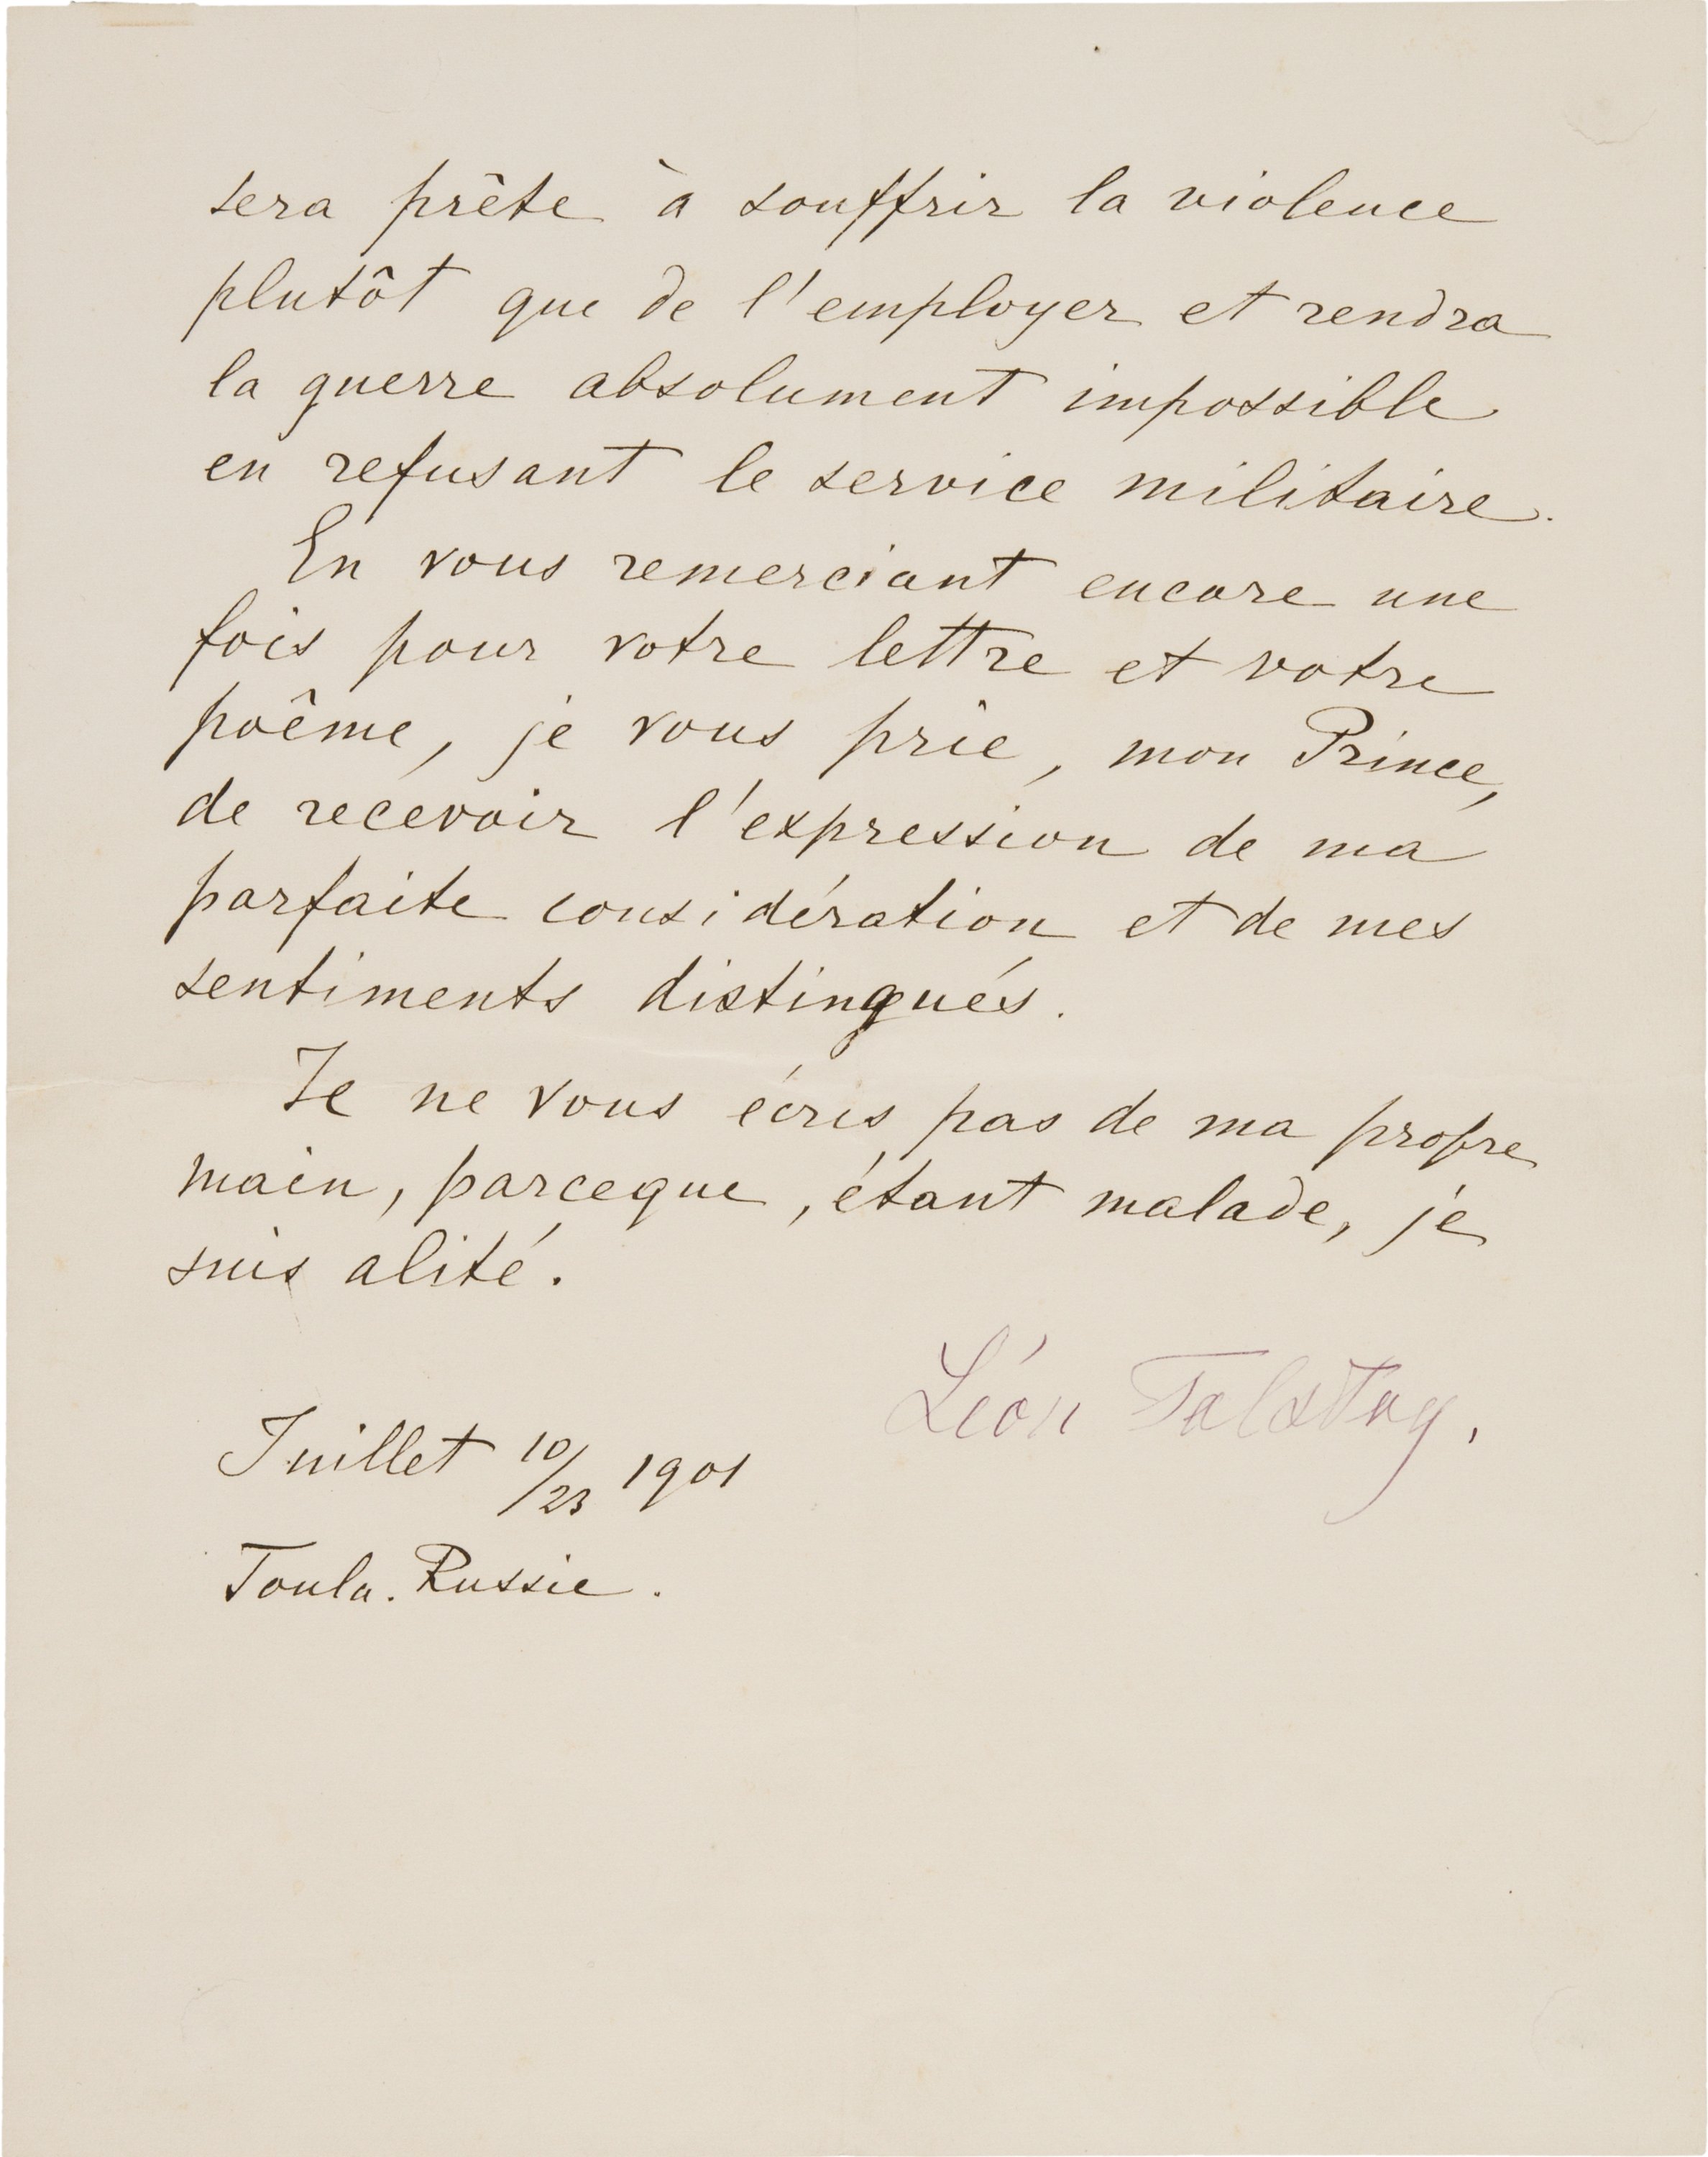 sera prête à souffrir la violence
plutôt que de l'employer et rendra
la guerre absolument impossible
en refusant le service militaire.
En vous remerciant encore une
fois pour votre lettre et votre
poême, je vous prie, mon Prince,
de recevoir l'expression de ma
parfaite considération et de mes
sentiments distingués.
Je ne vous écris pas de ma propre
main, parceque, étant malade, je
suis alité.
Léon Tolstoy.
Juillet 10/23 1901
Toula. Russie.